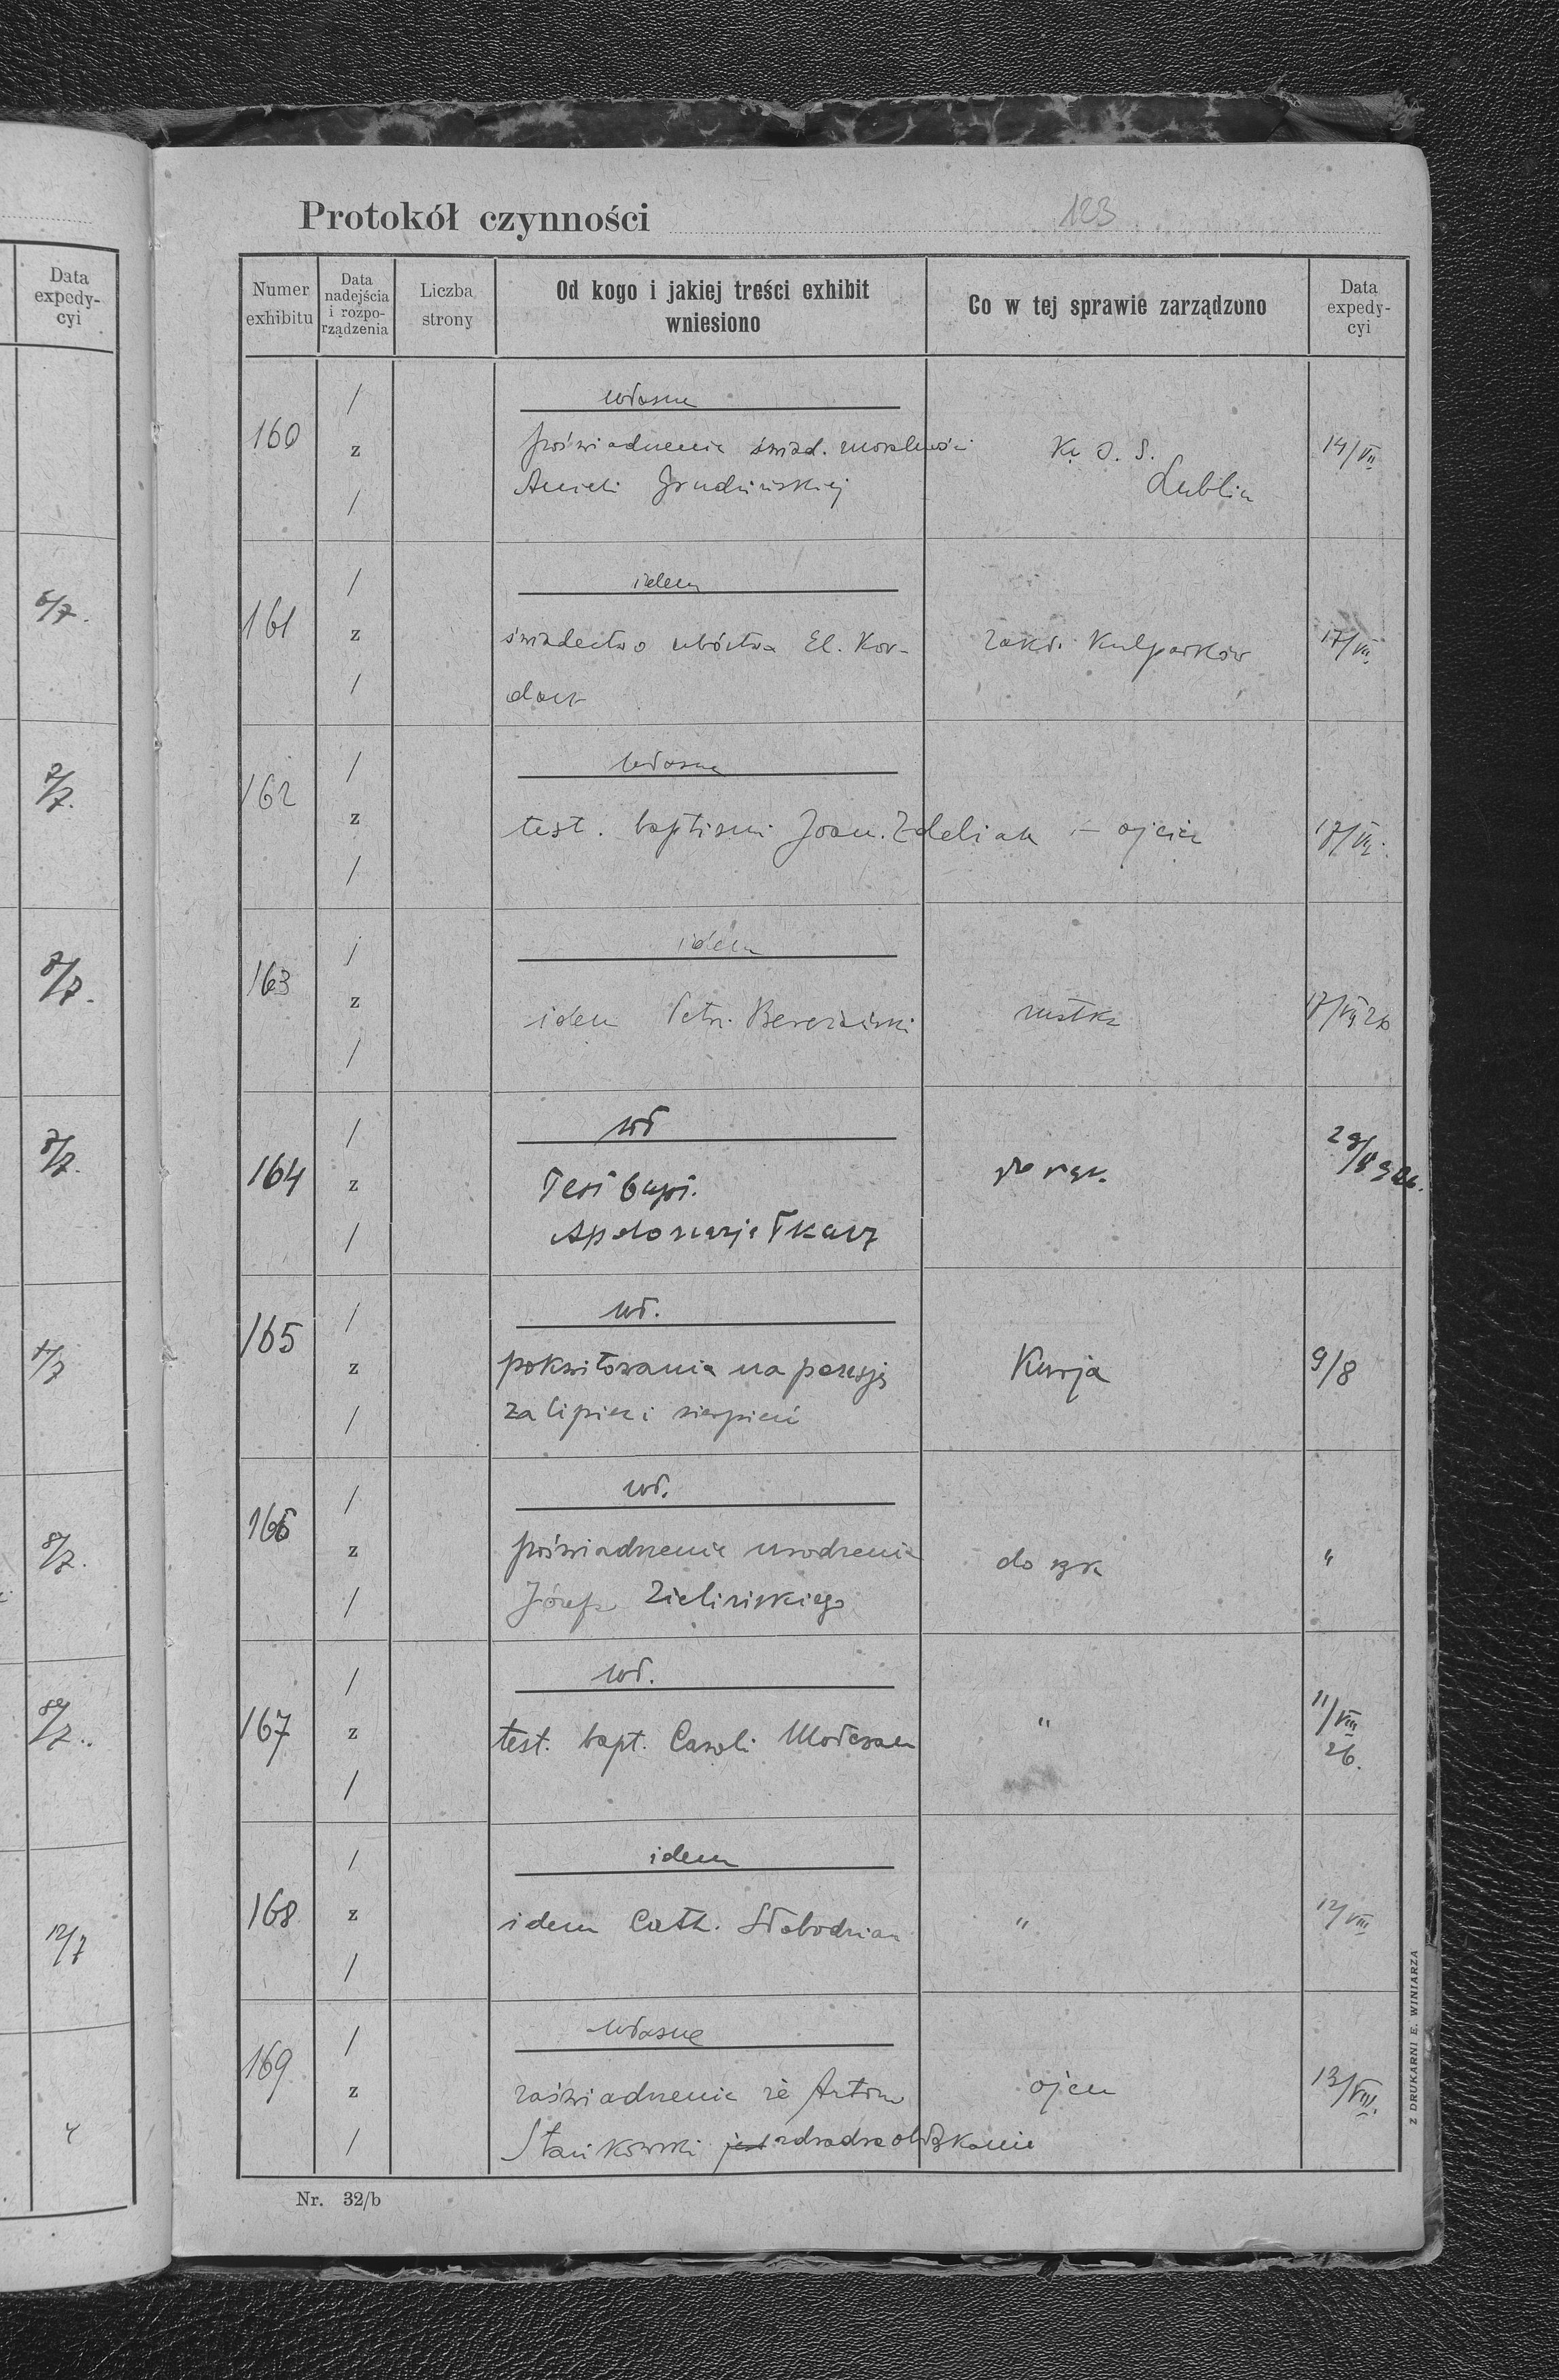 Data
expedy-
cyi
6/7.
7/7.
8/7.
8/7.
8/7.
12/7
Protokół czynności 123
Numer
exhibitu
Data
nadejścia
i rozpo-
rządzenia
Liczba
strony
Od kogo i jakiej treści exhibit
wniesiono
Co w tej sprawie zarządzono
Data
expedy-
cyi
160
/
z
/
własne
poświadczenie świad. moralności
Anieli Grudzińskiej
K. O. S.
Lublin
14/VII
161
/
z
/
idem
świadectwo ubóstwa El. Kor-
dacz
zakł. Kulparków
17/VII
162
/
z
/
własne
test. baptismi Joan. Zdeliak – ojciec
17/VII.
163
/
z
/
idem
idem Petri Bereziński
matka
17/VII 26
164
/
z
/
wł
Test bapt.
Apolonarja Tkacz
do rąk.
29/8 926.
165
/
z
/
wł.
pokwitowania na pensję
za lipiec i sierpień
Kurja
9/8
166
/
z
/
wł.
poświadczenie urodzenia
Józefa Zielińskiego
do rąk
"
167
/
z
/
wł.
test. bapt. Caroli Mołczan
"
11/VIII
26.
168
/
z
/
idem
idem Cath. Słabodzian
"
12/VIII
169
/
z
/
własne
zaświadczenie że Antoni
Stankowski jest zdradza obłąkanie
ojcu
13/VIII.
Nr. 32/b
Z DRUKARNI E. WINIARZA